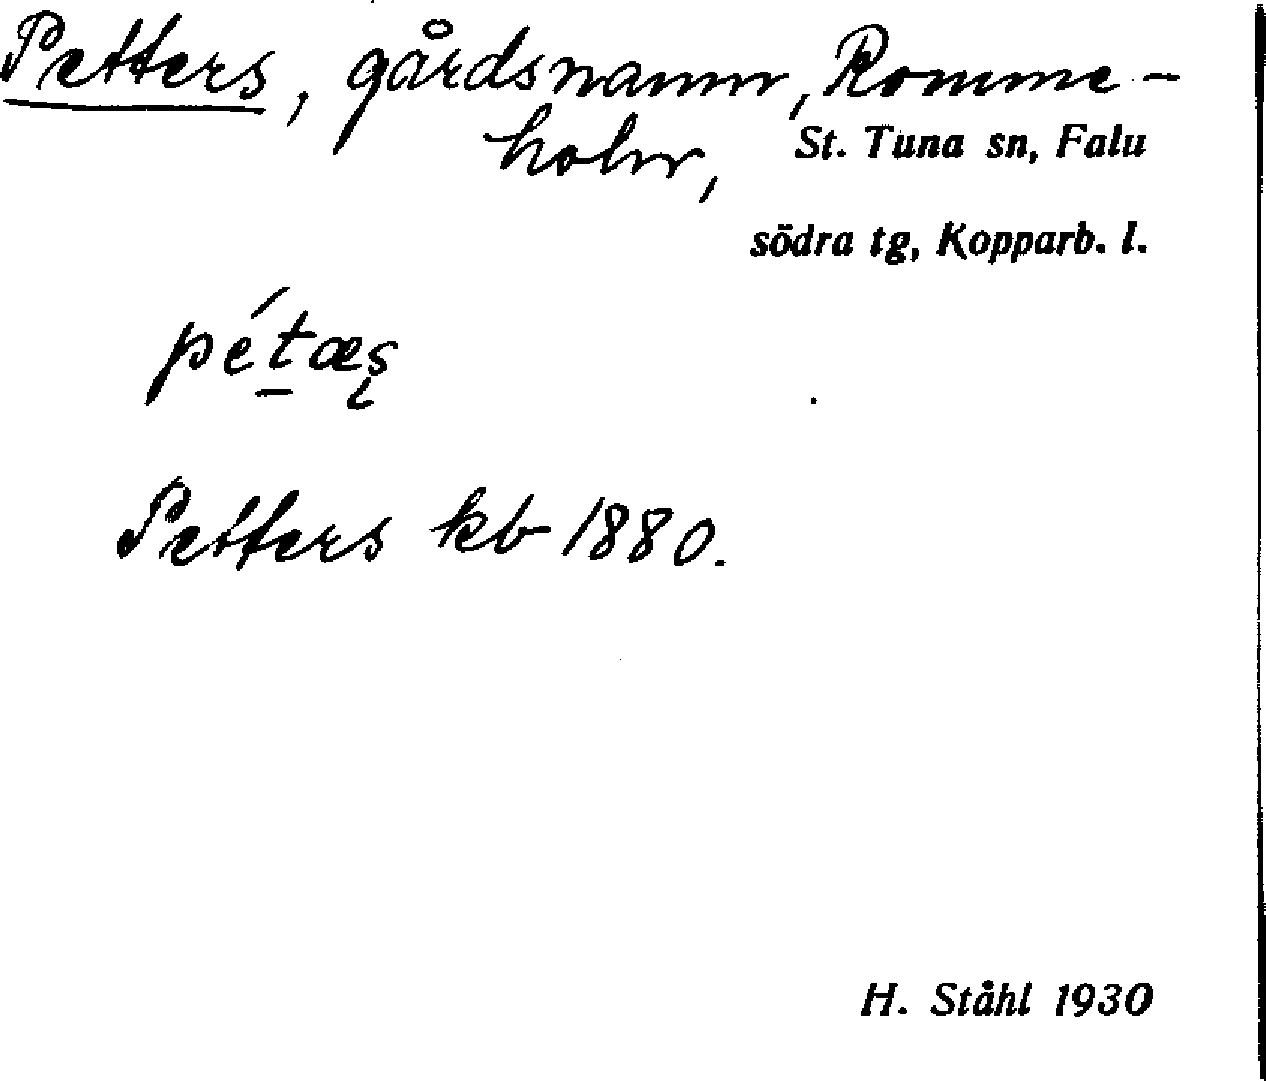 Petters, gårdsnamn, Romme-
holm,
St. Tuna sn, Falu
södra tg, Kopparb. l.
pétæs̨
Petters kb 1880.
H. Ståhl 1930